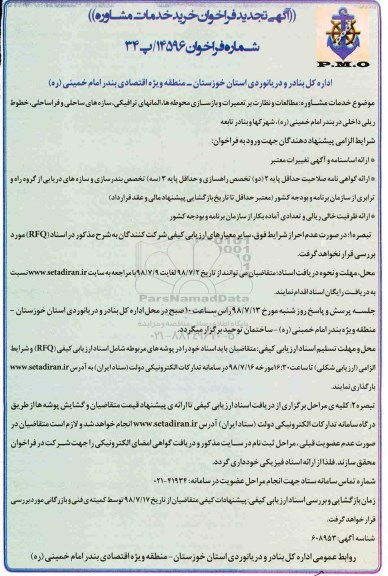 ((آگهی تجدید فراخوان خرید خدمات مشاوره))
شماره فراخوان ۱۴۵۹۶/پ۳۴
P.M.O
اداره کل بنادر و دریانوردی استان خوزستان ـ منطقه ویژه اقتصادی بندر امام خمینی (ره)
موضوع خدمات مشاوره: مطالعات و نظارت بر تعمیرات و بازسازی محوطه ها، المانهای ترافیکی، سازه های ساحلی و فراساحلی، خطوط
ریلی داخلی در بندر امام خمینی (ره)، شهرکها و بنادر تابعه
شرایط الزامی پیشنهاد دهندگان جهت ورود به فراخوان:
* ارائه اساسنامه و آگهی تغییرات معتبر
* ارائه گواهی نامه صلاحیت حداقل پایه ۲ (دو) تخصص راهسازی و حداقل پایه ۳ (سه) تخصص بندرسازی و سازه های دریایی از گروه راه و
ترابری از سازمان برنامه و بودجه کشور (معتبر حداقل تا تاریخ بازگشایی پیشنهاد مالی و عقد قرارداد)
* ارائه ظرفیت خالی ریالی و تعدادی آماده بکار از سازمان برنامه و بودجه کشور
تبصره۱: در صورت عدم احراز شرایط فوق، سایر معیارهای ارزیابی کیفی شرکت کنندگان به شرح مذکور در اسناد (RFQ) مورد
بررسی قرار نخواهد گرفت.
محل، مهلت و نحوه دریافت اسناد: متقاضیان می توانند از تاریخ ۹۸/۷/۲ لغایت ۹۸/۷/۹ با مراجعه به سایت www.setadiran.ir نسبت
به دریافت رایگان اسناد اقدام نمایند.
جلسه پرسش و پاسخ روز شنبه مورخ ۹۸/۷/۱۳ راس ساعت ۱۰ صبح در محل اداره کل بنادر و دریانوردی استان خوزستان -
منطقه ویژه بندر امام خمینی (ره) - ساختمان توحید برگزار میگردد.
محل و مهلت تسلیم اسناد ارزیابی کیفی: متقاضیان باید اسناد خود را در پوشه های مربوطه شامل اسناد ارزیابی کیفی (RFQ) و شرایط
الزامی (ارزیابی شکلی) تا ساعت ۱۶:۳۰ مورخه ۹۸/۷/۱۶ در سامانه تدارکات الکترونیکی دولت (ستاد ایران) به آدرس www.setadiran.ir
بارگذاری نمایند.
تبصره۲: کلیه ی مراحل برگزاری از دریافت اسناد ارزیابی کیفی تا ارائه ی پیشنهاد قیمت متقاضیان و گشایش پوشه ها از طریق
درگاه سامانه تدارکات الکترونیکی دولت (ستاد ایران) آدرس www.setadiran.ir انجام خواهد شد و لازم است متقاضیان در
صورت عدم عضویت قبلی، مراحل ثبت نام در سایت مذکور و دریافت گواهی امضای الکترونیکی را جهت شرکت در فراخوان
محقق سازند. فلذا از ارائه اسناد فیزیکی خودداری گردد.
شماره تماس سامانه ستاد جهت انجام مراحل عضویت در سامانه: ۴۱۹۳۴-۰۲۱
زمان بازگشایی و بررسی اسناد ارزیابی کیفی: پیشنهادات کیفی متقاضیان از تاریخ ۹۸/۷/۱۷ توسط کمیته ی فنی و بازرگانی مورد بررسی
قرار خواهد گرفت.
شناسه آگهی: ۶۰۸۹۵۳
روابط عمومی اداره کل بنادر و دریانوردی استان خوزستان - منطقه ویژه اقتصادی بندر امام خمینی (ره)
ParsNamadData